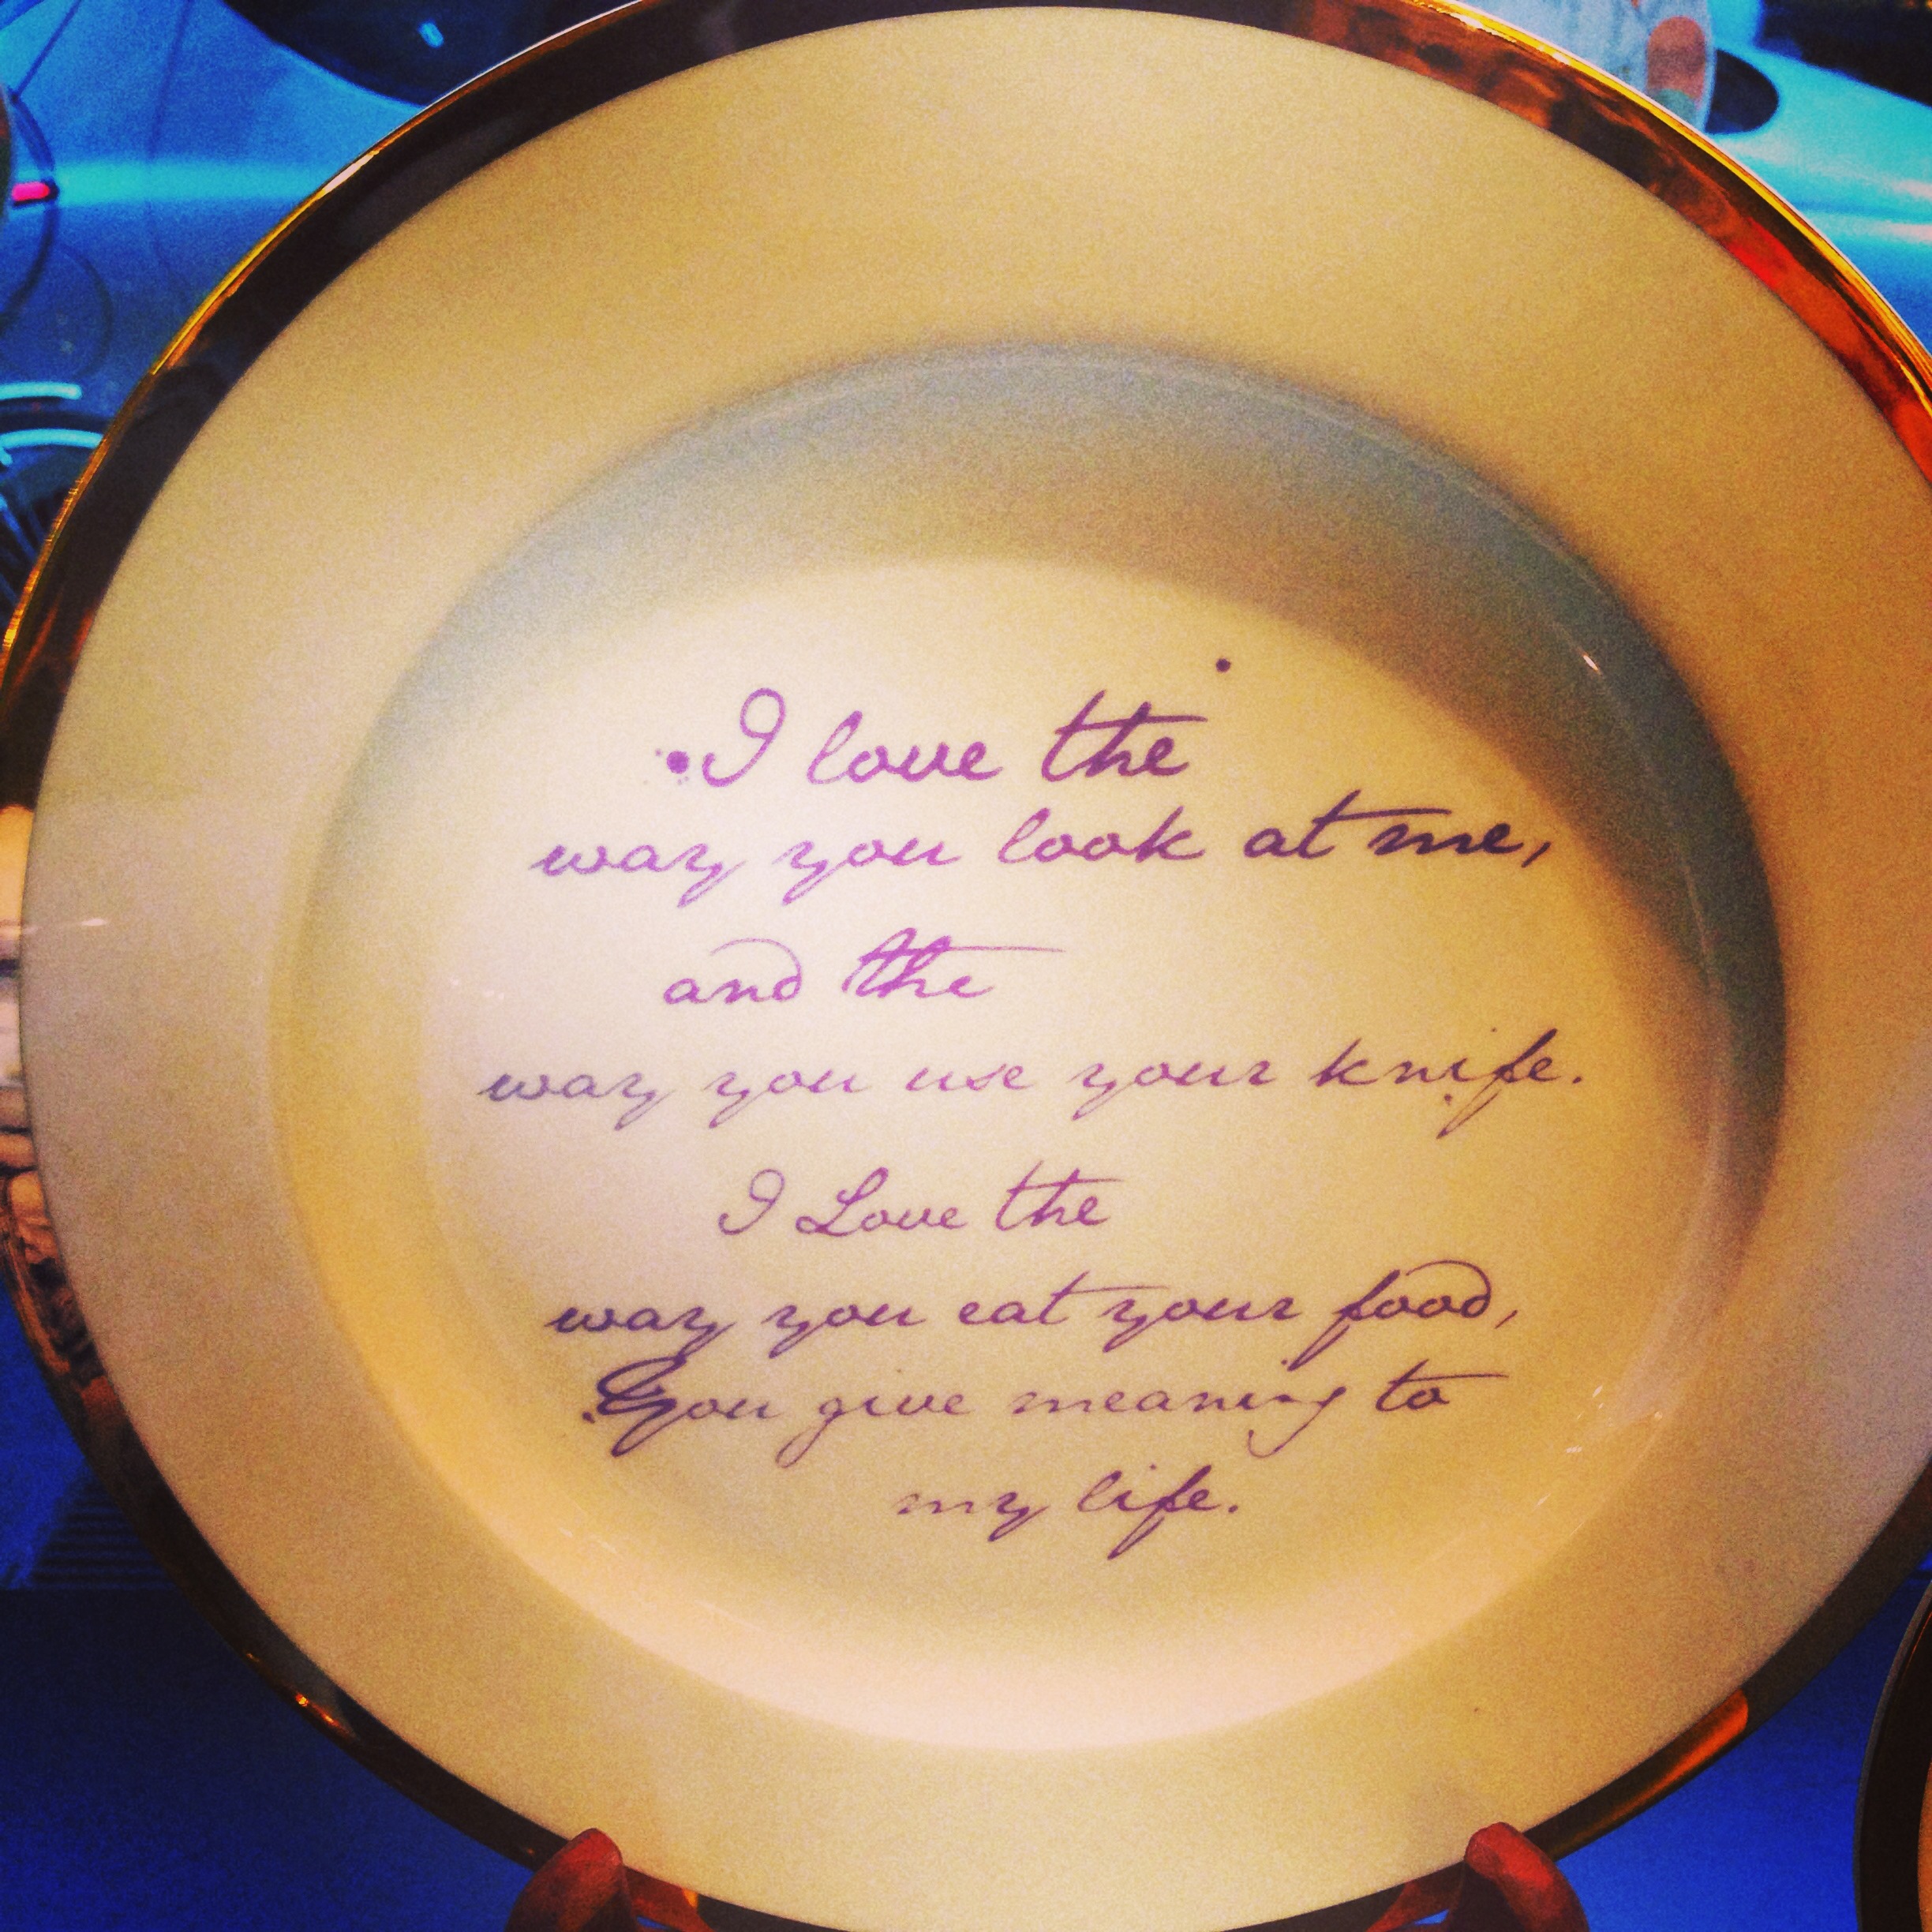 I love the
way you look at me,
and the
way you use your knife.
I Love the
way you eat your food,
You give meaning to
my life.